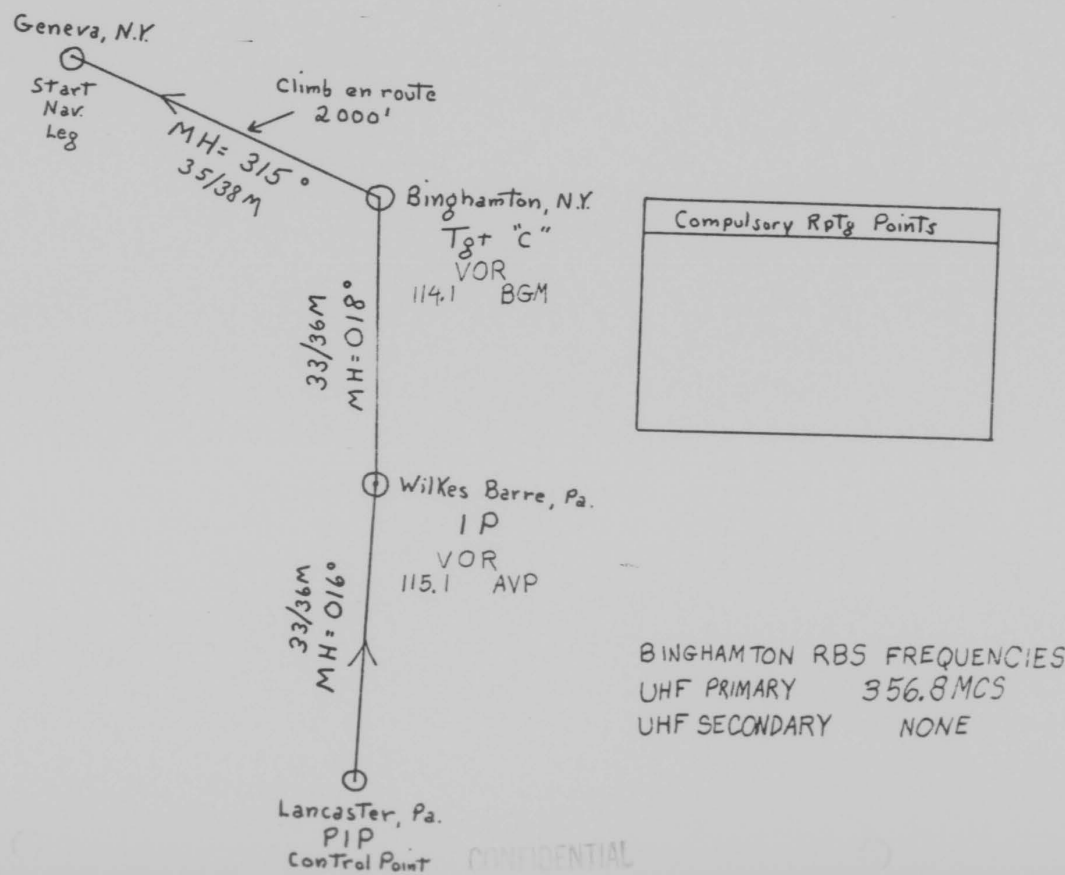 Geneva, N.Y.
Start
Nav.
Leg
Climb en route
2000'
MH = 315°
35/38M
Binghamton, N.Y.
Tgt "C"
VOR
114.1 BGM
Compulsory Rptg Points
MH = 018°
33/36M
Wilkes Barre, Pa.
IP
VOR
115.1 AVP
MH = 016°
33/36M
BINGHAMTON RBS FREQUENCIES
UHF PRIMARY 356.8 MCS
UHF SECONDARY NONE
Lancaster, Pa.
PIP
Control Point
CONFIDENTIAL